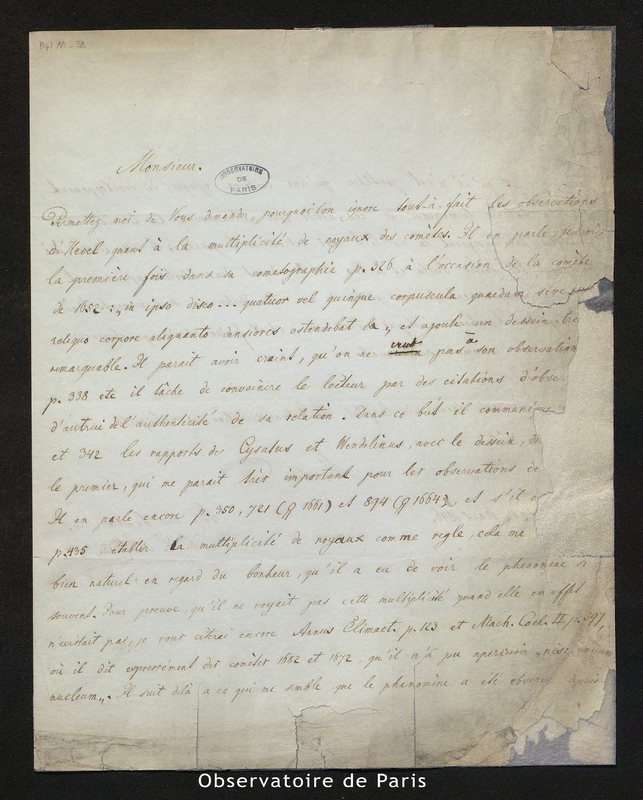 141 M-32
Monsieur.
OBSERVATOIRE
DE
PARIS
Permettez moi de Vous demander, pourquoi l'on ignore tout-à-fait les observations
d'Hevel quant à la multiplicité de noyaux des comètes. Il en parle
la première fois dans sa cometographie p. 326 à l'occasion de la comète
de 1652: „in ipso disco ... quatuor vel quinque corpuscula quaedam sive
reliquo corpore aliquanto densiores ostendebat &" et ajoute un dessein
remarquable. Il parait avoir craint, qu'on ne crut pas à son observation
p. 338 etc il tâche de convaincre le lecteur par des citations
d'autrui de l'authenticité de sa relation. Dans ce but il communique
et 342 les rapports de Cysatus et Wendelinus, avec le dessein, de
le premier, qui me parait très important pour les observations de
Il en parle encore p. 350, 721 (1661) et 894 (1664), et s'il
p. 435 établir la multiplicité de noyaux comme regle, cela me
bien naturel en regard du bonheur, qu'il a eu de voir le phenomène si
souvent. Pour preuve, qu'il ne voyait pas cette multiplicité quand elle en effet
n'existait pas, je vous citerai encore Annus Climact. p. 123 et Mach. Coel. II p. 597,
où il dit expressément des comètes 1682 et 1672, qu'il n'a pu apercevoir „nisi unicum
nucleum". Il suit delà a ce qui me semble, que le phenomène a été observé depuis
Observatoire de Paris